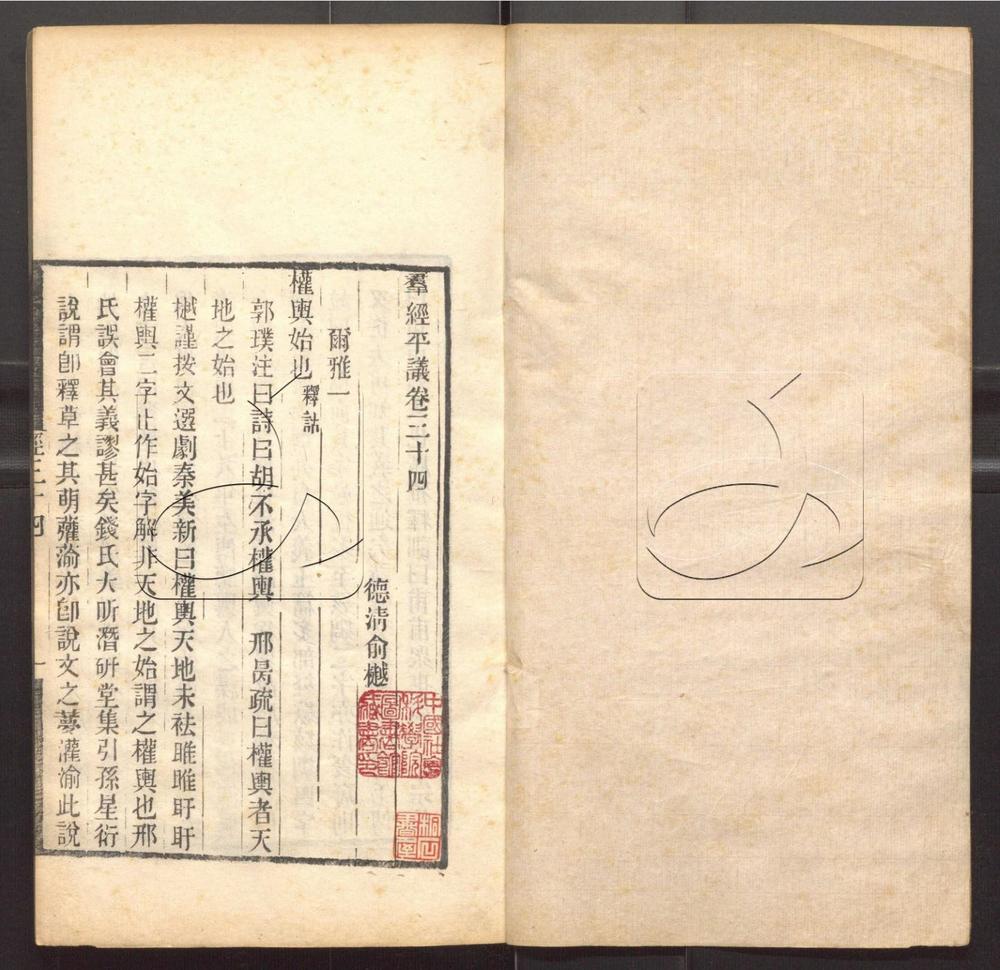 羣經平議卷三十四
德清俞樾
爾雅一
權輿始也釋詁
郭璞注曰詩曰胡不承權輿 邢昺疏曰權輿者天
地之始也
樾謹按文選劇秦美新曰權輿天地未祛睢睢盱盱
權輿二字止作始字解非天地之始謂之權輿也邢
氏誤會其義謬甚矣錢氏大昕潛硏堂集引孫星衍
說謂卽釋草之其萌虇蕍亦卽說文之夢灌渝此說
經三十四
一